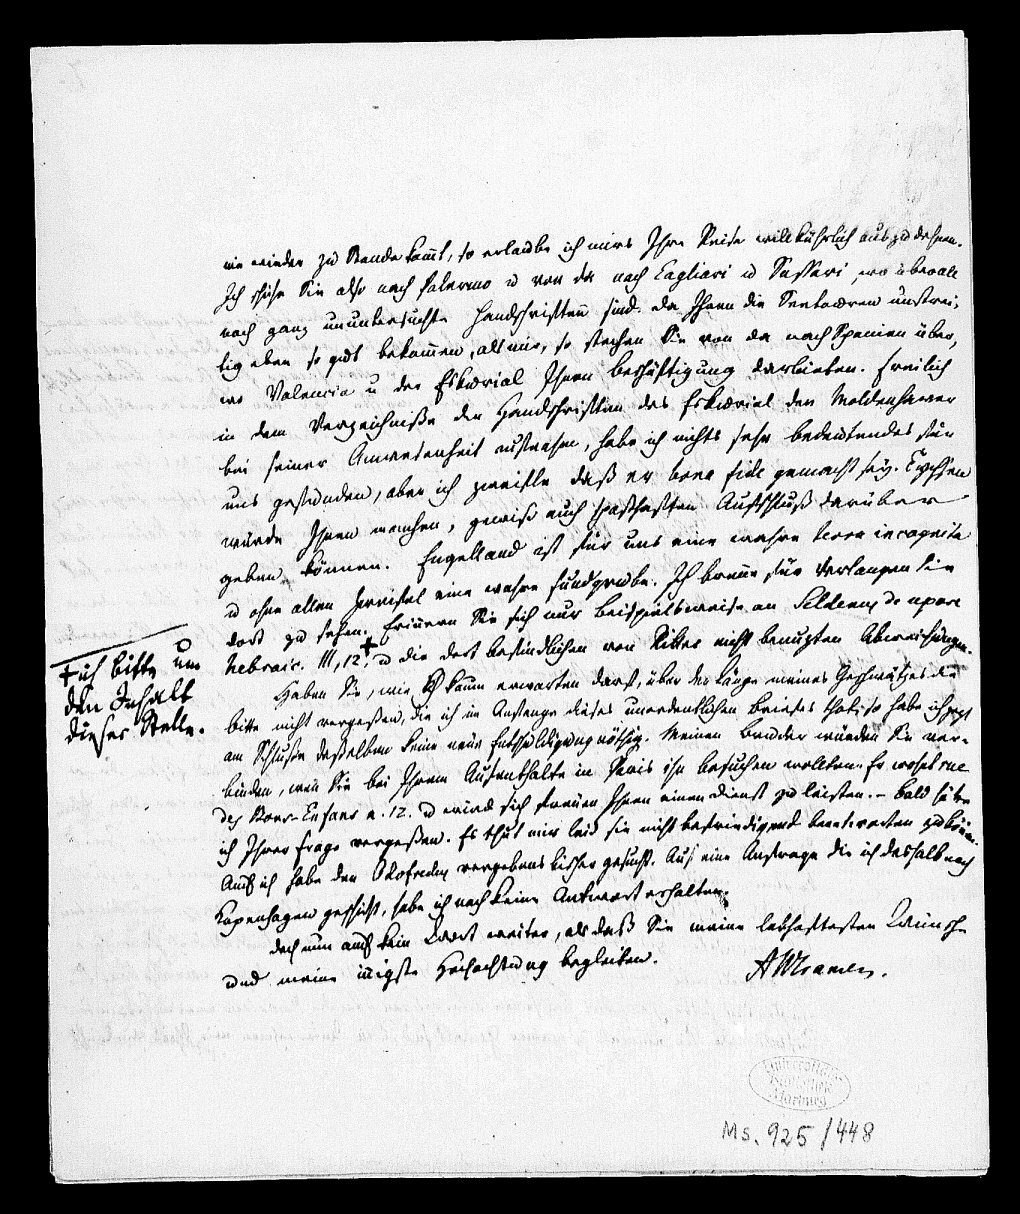 nie wieder zu Stande kom̃t, so erlaube ich mir Ihre Reise willkührlich auszudehnen.
Ich schicke Sie also nach Palermo u von da nach Cagliari u Sassari, wo überall
noch ganz ununtersuchte Handschriften sind. Da Ihnen die Seeluft
eben so gut bekom̃en, als mir, so stechen Sie von da nach Spanien über,
wo Valencia u der Eskorial Ihnen Beschäftigung darbieten. Freilich
in dem Verzeichniße der Handschriften des Eskorial den Moldenhawer
bei seiner Anwesenheit aufnahm, habe ich nichts sehr bedeutendes für
uns gefunden, aber ich zweifle daß er bona fide gemacht sey. Tychsen
würde Ihnen manchen, gewiß auch spaßhaften Aufschluß darüber
geben können. Engelland ist für uns eine wahre terra incognita
u ohne allen Zweifel eine wahre Fundgrube. Ich brenne für Verlangen Sie
dort zu sehen. Erinnern Sie sich nur beispielsweise an Seldenus de uxore
hebraic. III, 12.† u die dort befindlichen von Ritter nicht benuzten Abweichungen.
† ich bitte um
den Inhalt
dieser Stelle.
Haben Sie, wie ich kaum erwarten darf, über der Länge meines Geschwätzes die
Bitte nicht vergeßen, die ich im Anfange dieses unordentlichen Briefes that, so habe ich jezt
am Schluße deßelben keine neue Entschuldigung nöthig. Meinen Bruder würden Sie ver-
binden, wen Sie bei Ihrem Aufenthalte in Paris ihn besuchen wollten. Er wohnt rue
des Bons-Enfans n. 12. u wird sich freuen Ihnen einen Dienst zu leisten. – Bald hätte
ich Ihrer Frage vergeßen. Es thut mir leid sie nicht befriedigend beantworten zu können.
Auch ich habe den vergebens bisher gesucht. Auf eine Anfrage die ich deshalb nach
Kopenhagen geschickt, habe ich noch keine Antwort erhalten.
Doch nun auch kein Wort weiter, als daß Sie meine lebhaftesten Wünsche
und meine innigste Hochachtung begleiten.
AWCramer.
Universitäts-
Bibliothek
Marburg
Ms. 925/448